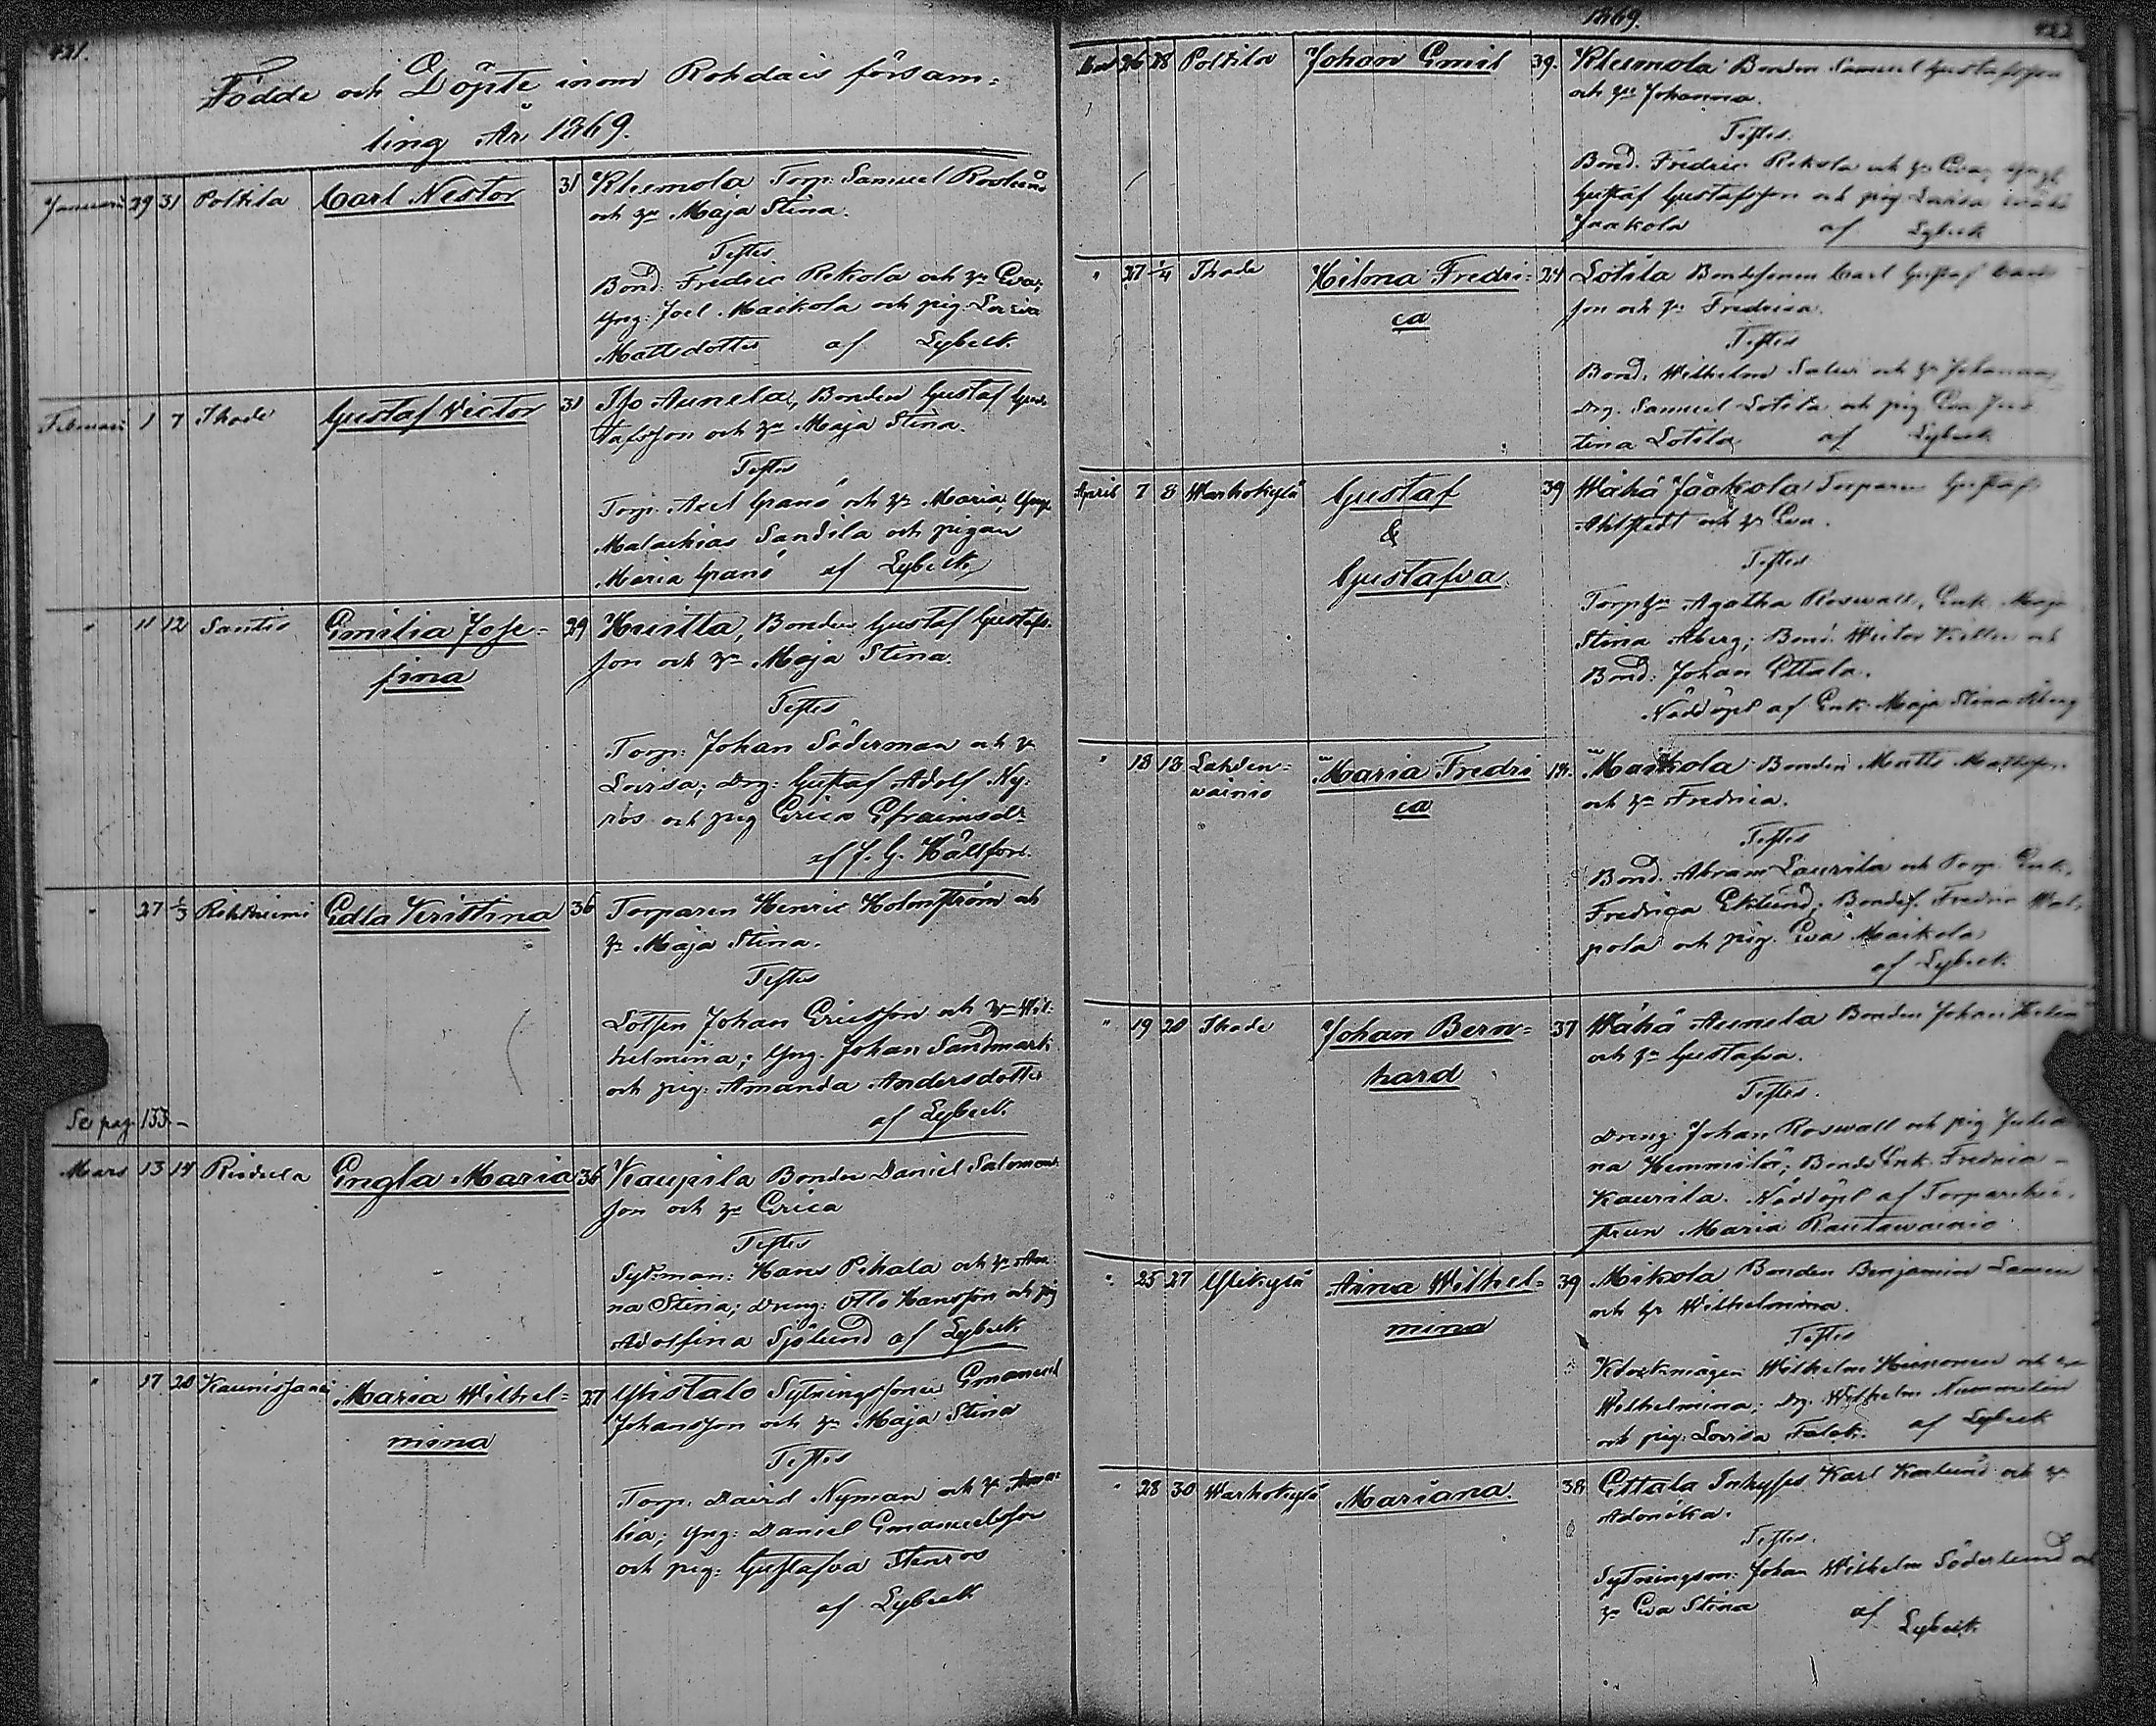 421.
Födde och Döpte inom Rohdais försam=
ling År 1869.
Januari 29 31 Poltila Carl Nestor 31 Klemola Torp. Samuel
och hu Maja Stina.
Testes
Bond. Fredric Rekola och hu Eva;
Yng: Joel Maikola och pig: Lovisa
Mattsdotter af Lybeck
Februari 1 7 Ihode Gustaf Victor 31 Iso Aunela, Bonden Gustaf Gus
tafsson och hu Maja Stina.
Testes
Torp. Axel Granö och hu Maria, Yng
Malachias Sandila och pigan
Maria Granö af Lybeck
" 11 12 Santio Emilia Jose= 29 Heikkilä, Bonden Gustaf Gustafs=
fina
son och hu Maja Stina.
Testes
Torp: Johan Söderman och hu
Lovisa; Drg: Gustaf Adolf Ny=
ros och pig Erica Efraimsdr
af J. G. Hällfors.
" 27 1/3 Rihtniemi Edla Kristina 36 Torparen Henric Holmström och
hu Maja Stina.
Testes
Lotsen Johan Ericsson och hu Wil=
helmina; Yng. Johan Sandmark
och pig: Amanda Andersdotter
af Lybeck.
Se pag. 133.
Mars 13 14 Engla Maria 36 Kaupila Bonden Daniel Salomons
son och hu Erica
Testes
Sytman: Hans Pihala och hu An=
na Stina; Dreng: Otto Hansson och pig
Adolfina Sjölund af Lybeck
" 17 20 Maria Wilhel= 27 Ylistalo Sytningssonen Emanuel
mina
Johansson och hu Maja Stina
Testes
Torp. David Nyman och hu Ama=
lia; Yng: Daniel Emanuelsson
och pig: Gustafva Stenros
af Lybeck
1869.
422
Mars 26 28 Poltila Johan Emil 39. Klemola Bonden Samuel Gustafsson
och hu Johanna.
Testes.
Bond. Fredric Rekola och hu Eva, Yng
Gustaf Gustafsson och pig Lovisa
Jaakola af Lybeck
" 27 1/4 Ihode Hilma Fredri= 24 Lotila Bondesonen Carl Gustaf Carls
ca
son och hu Fredrica.
Testes
Bond. Wilhelm och hu Johanna
Drg. Samuel Lotila och pig Eva Jus
tina Lotila af Lybeck
April 7 8 Warhokylä Gustaf 39 Wähä Jaakola Torparen Gustaf
&
Gustafva
Ahlstedt och hu Eva.
Testes
Torphu Agatha Roswall, Enk. Maja
Stina Åberg; Bond. och
Bond: Johan Ettala.
Nöddöpt af Enk. Maja Stina Åberg
" 18 18 Lahden= Maria Fredri 19. Maikola Bonden Matts Mattsson
wainio
ca
och hu Fredrica.
Testes
Bond. Abram Laurila och Torp. Enk.
Fredrica Eklund; Bondes. Fredric Wal=
pola och pig. Eva Maikola
af Lybeck
" 19 20 Ihode Johan Bern= 37 Wähä Aunela Bonden Johan
hard
och hu Gustafva.
Testes.
Dreng: Johan Roswall och pig Julia
na Hemmilä; Bonde Enk. Fredrica
Kaurila. Nöddöpt af Torparehu=
strun Maria Rautawainio
" 25 27 Ylikylä Anna Wilhel= 39 Mikola Bonden Benjamin
mina
och hu Wilhelmina.
Testes
Wilhelm Heinonen och hu
Wilhelmina; Drg. Wilhelm Nummelin
och pig: Lovisa Falck. af Lybeck
" 28 30 Warhokylä Mariana. 38 Ettala Inhyses Karl Karlund och hu
Testes.
Sytningsm. Johan Wilhelm Söderlund och
hu Eva Stina af
Lybeck